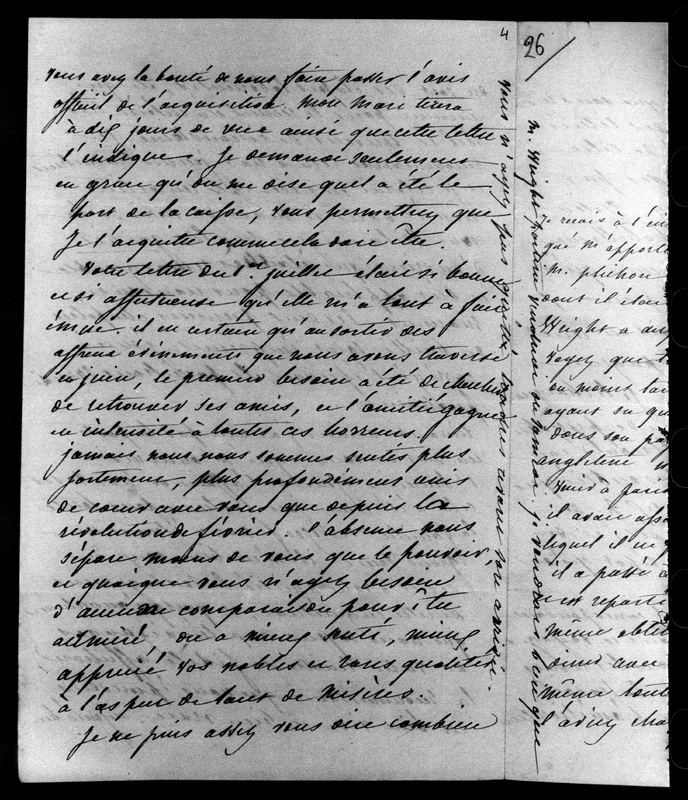 4
26
vous avez la bonté de nous faire passer l'avis
officiel de l'acquisition. Mon Mari tirera
à dix jours de vue ainsi que cette lettre
l'indique. Je demande seulement
en grace qu'on me dise quel a été le
port de la caisse, vous permettrez que
Je l'acquitte comme cela doit être.
Votre lettre du 1er juillet était si bonne
et si affectueuse qu'elle m'a tout à fait
émue. il est certain qu'au sortir des
affreux évènements que nous avons traversé
en juin, le premier besoin a été de chercher
de retrouver ses amis, et l'amitié gagne
en intensité à toutes ces horreurs.
jamais nous nous sommes sentis plus
fortement, plus profondément unis
de coeur avec vous que depuis la
révolution de février. l'absence nous
sépare moins de vous que le pouvoir,
et quoique vous n'ayez besoin
d'aucune comparaison pour être
admiré on a mieux senti, mieux
apprécié vos nobles et rares qualités
à l'aspect de tant de Misères.
Je ne puis assez vous dire combien
M. Wright part vendredi ou samedi. je voudrais bien que
vous n'ayez pas quitté Londres avant son arrivée.
que m'apporte
M. pichon
dont il étai
Wright a
voyez que
ou moins
ayant su qu
dans son pa
angleterre
venir à paris
il avait
lequel il
il a passé à
même
diner avec
même tout